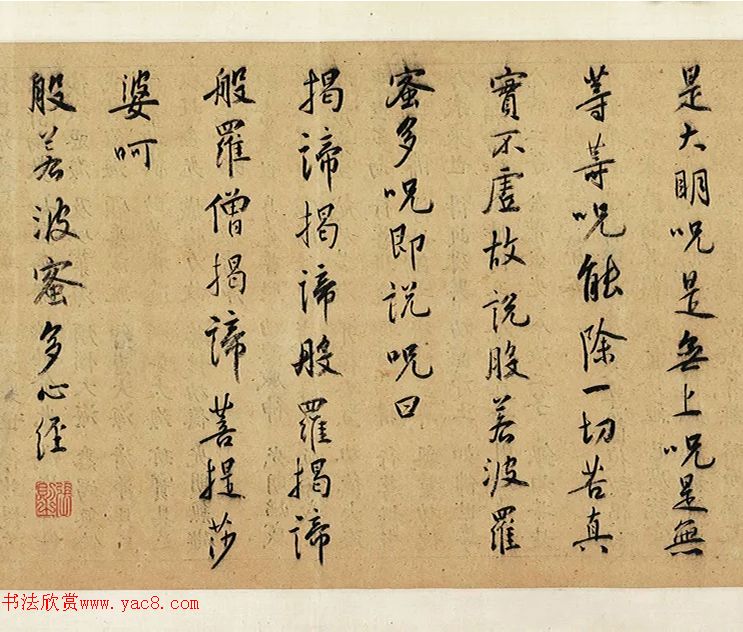 是大明呪是無上呪是無
等等呪能除一切苦真
實不虛故說般若波羅
蜜多呪即說呪曰
揭諦揭諦般羅揭諦
般羅僧揭諦菩提莎
婆呵
般若波蜜多心經
书法欣赏www.yac8.com